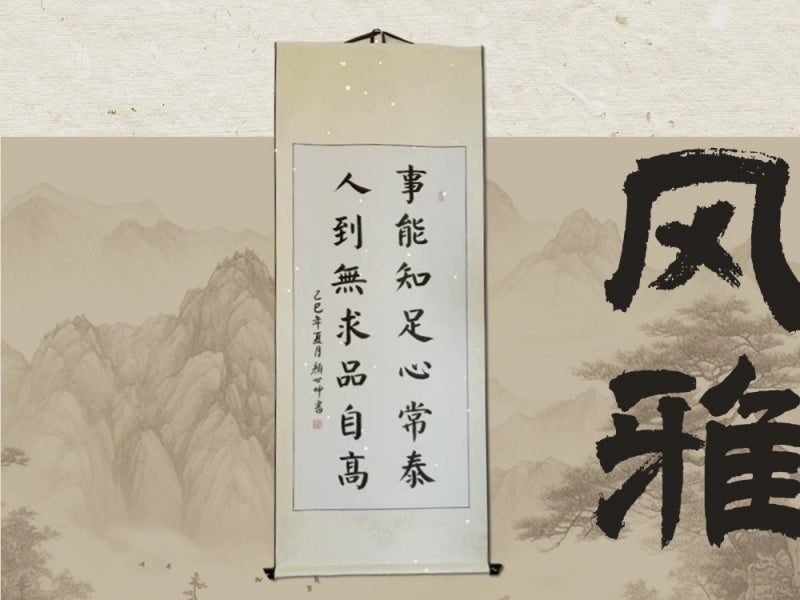 事能知足心常泰
人到無求品自高
乙巳年夏月顏世坤書
风雅